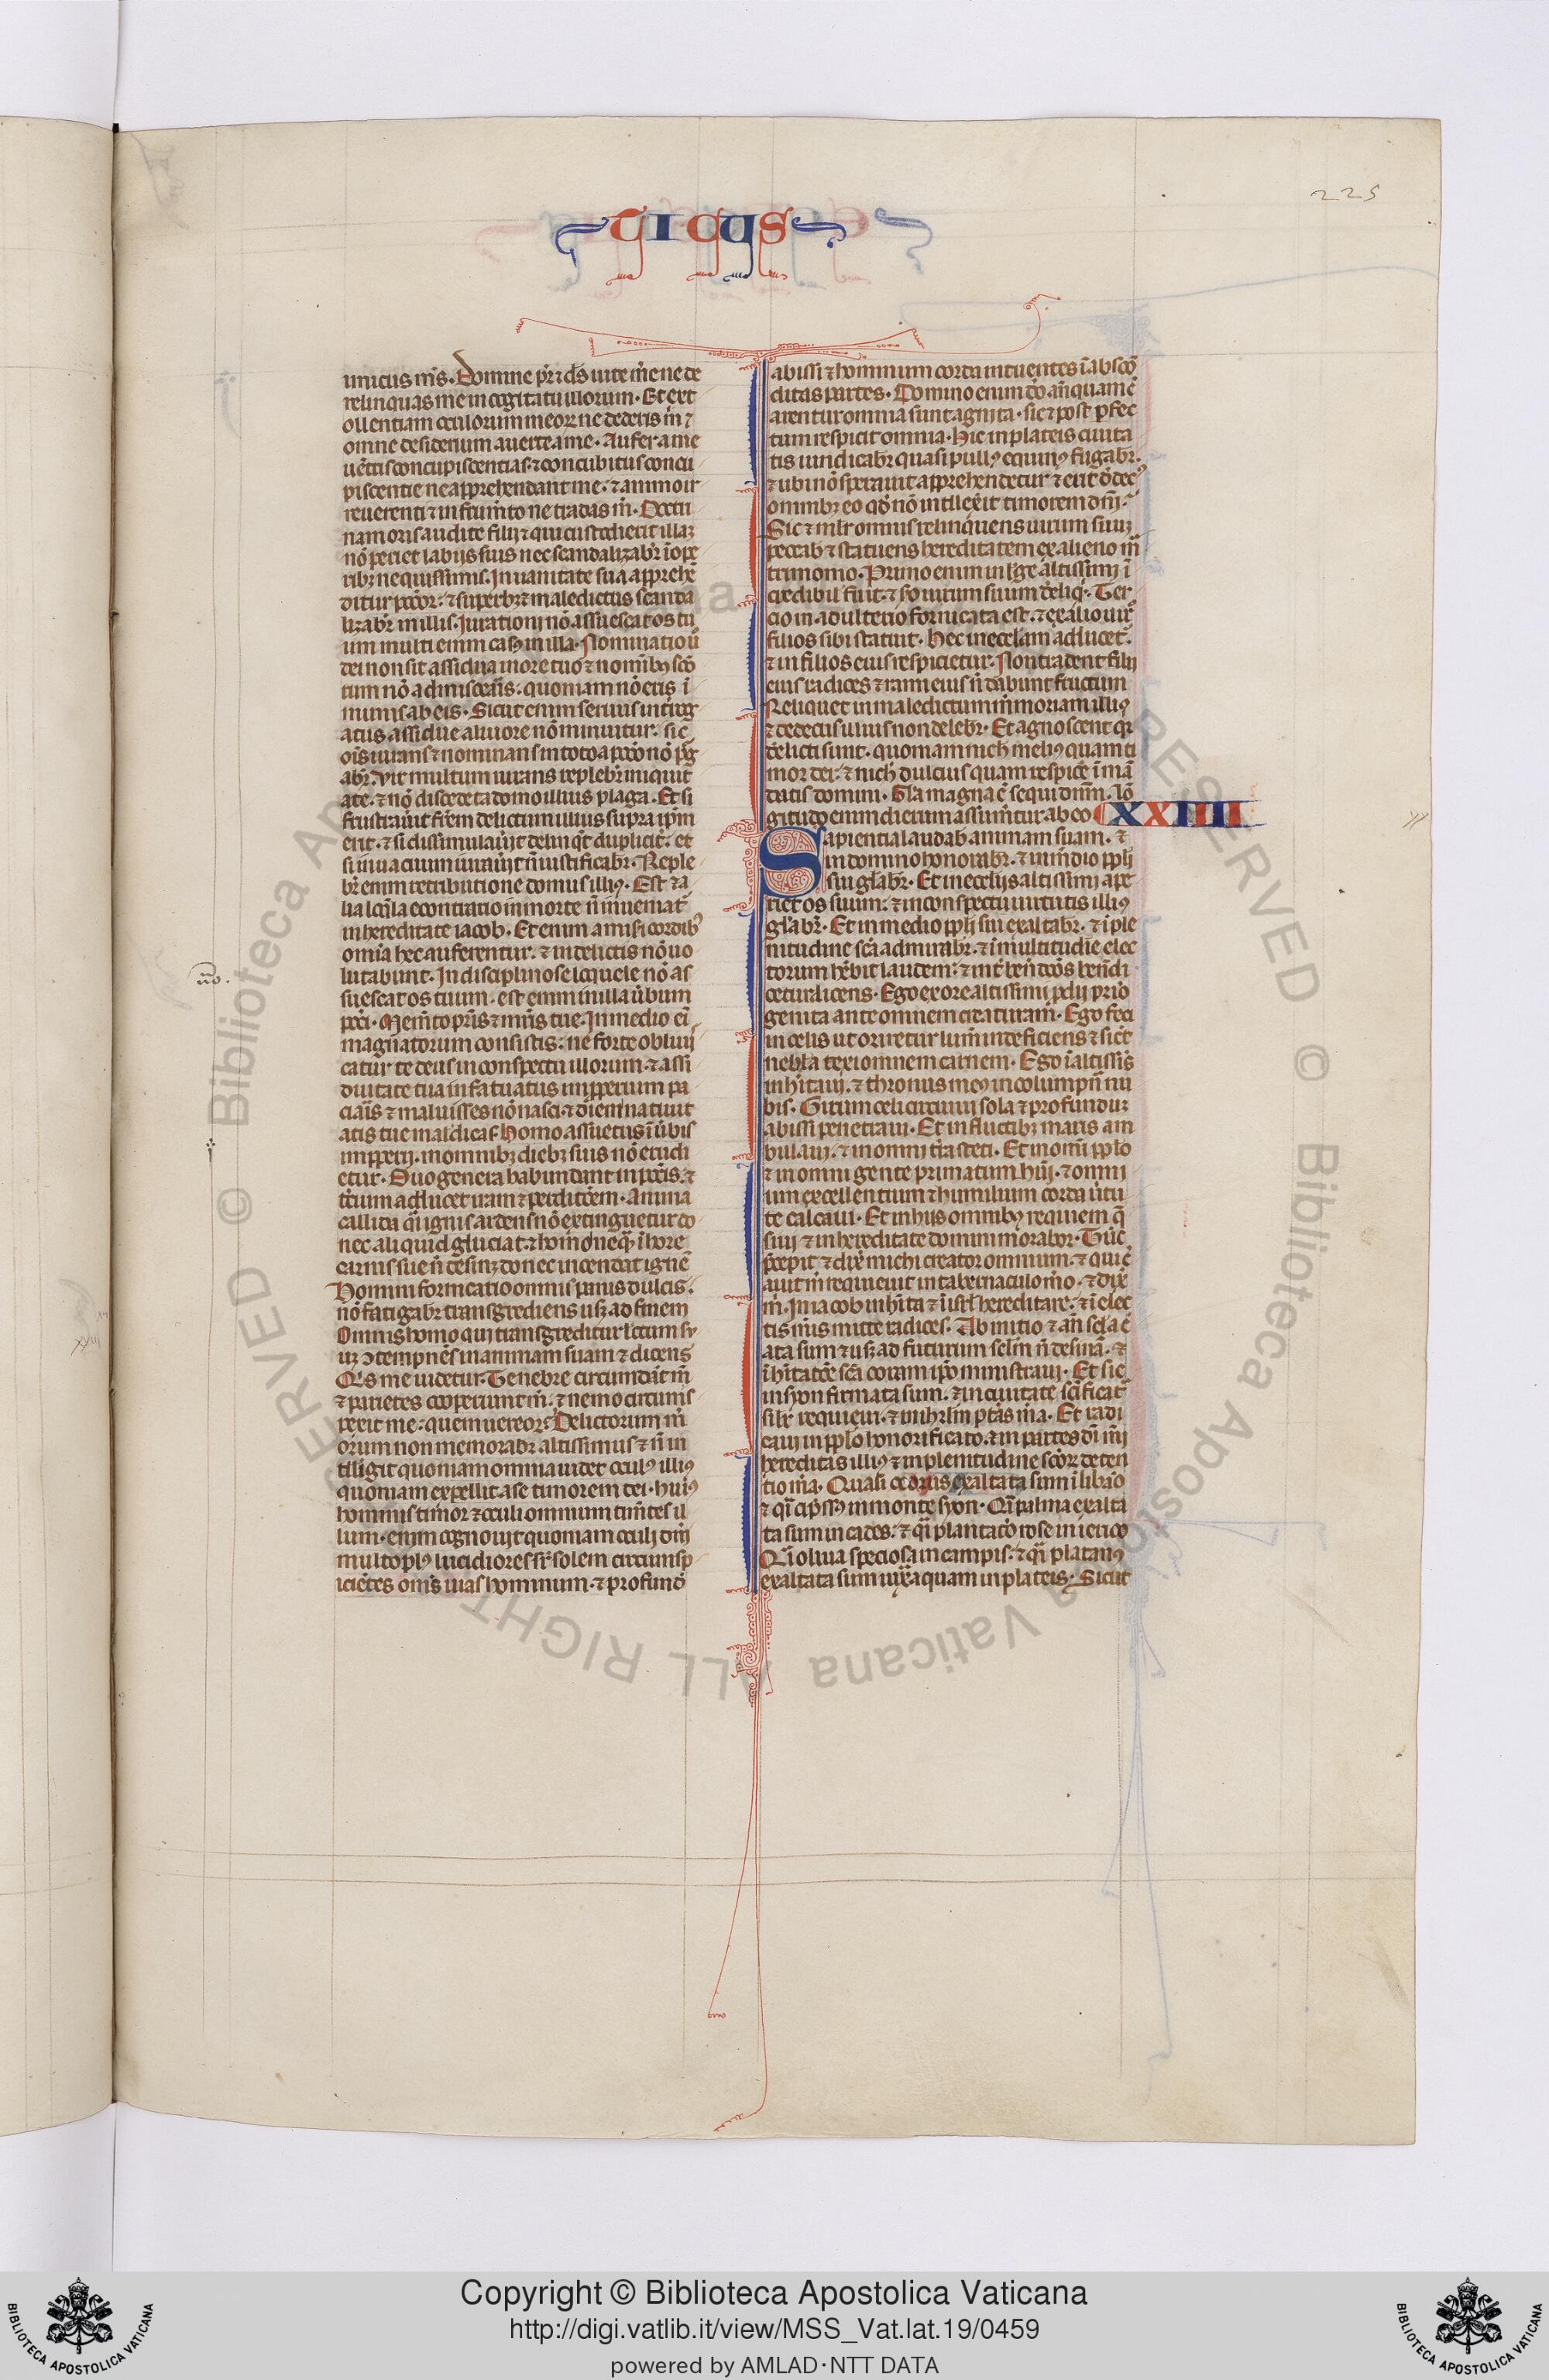 225
TICUS
unicus m̃s. Domine pr̃ ⁊ ds̃ uite m̃e ne de
relinquas me in cogitatu illorum. Et ext
ollentiam oculorum meoꝝ ne dederis m̃ ⁊
omne desiderium auerte a me. Aufer a me
uẽtris concupiscentias. ⁊ concubitus concu
piscentie ne apprehendant me. ⁊ animo ir
reuerenti ⁊ infrunito ne tradas m̃. Doctri
nam oris audite filij ⁊ qui custodierit illaꝫ
nõ periet labijs suis nec scandalizabr̃ ĩ ope
ribꝫ nequissimis. In uanitate sua apprehẽ
ditur pccõr. ⁊ superbꝰ ⁊ maledictus scanda
lizabr̃ in illis. Iurationi nõ assuescat os tu
um multi enim casꝰ in illa. Nominatio ũ
dei non sit assidua in ore tuo ⁊ nomibꝰ scõ
rum nõ admiscearis. quoniam nõ eris ĩ
munis ab eis. Sicut enim seruus introg
atus assidue a liuore nõ minuitur. sic
oĩs iurans ⁊ nominans in toto a pccõ nõ pg̃
abr̃. Vir multum iurans replebr̃ iniquit
ate. ⁊ nõ discedet a domo illius plaga. Et si
frustrauĩt frẽm delictum illius supra ipm̃
erit. ⁊ si dissimulauĩt delinqt̃ duplicit̃. et
si in uacuum iurauĩt ñ iustificabr̃. Reple
br̃ enim retributione domus illiꝰ. Est ⁊ a
lia loq̃la econtrario in morte ñ inueniat̃
in hereditate iacob. Et enim a misicordibꝰ
omĩa hec auferentur. ⁊ in delictis nõ uo
lutabunt. In disciplinose loquele nõ as
suescat os tuum. est enim in illa ũbum
pccĩ. Memto pr̃is ⁊ mr̃is tue. In medio eĩ
magnatorum consistis. ne forte obliui
catur te deus in conspectu illorum. ⁊ assi
duitate tua infatuatus improperium pa
ciar̃is ⁊ maluisses nõ nasci. ⁊ diem natiuit
atis tue maledicas. Homo assuetus ĩ ũbis
improperij. in omnibꝫ diebꝫ suis nõ erudi
etur. Duo genera habundant in pccĩs. ⁊
tc̃ium adducet iram ⁊ perditõem. Anima
callida qi ignis ardens nõ extinguetur do
nec aliquid gluciat. ⁊ homo neq̃ ĩ hore
carnis sue ñ desinꝫ donec incendat ignẽ
Homini fornicatio omnis panis dulcis.
nõ fatigabr̃ transgrediens usꝫ ad finem
Omnis homo qui transgreditur lectum su
uꝫ ↄtempnẽs in animam suam ⁊ dicens
Qis me uidetur. Tenebre circumdãt m̃
⁊ parietes cooperiunt m̃. ⁊ nemo circums
pexit me. quem uereor. Delictorum m̃
orum non memorabr̃ altissimus ⁊ ñ in
telligit quoniam omnia uidet oculꝰ illiꝰ
quoniam expellit a se timorem dei. huiꝰ
hominis timor ⁊ oculi omnium timẽtes il
lum. enim cognouit quoniam oculi dnĩ
multo plꝰ lucidiores sr̃ solem circumsp
icietes oms̃ uias hominum. ⁊ profund̃
abissi ⁊ hominum corda intuentes ĩ abscõ
ditas partes. Domino enim dõ añquam c̃
arentur omnia sunt agnita. sic ⁊ post pfec
tum respicit omnia. Hic in plateis ciuita
tis uindicabr̃ quasi pullꝰ equinꝰ fugabr̃.
⁊ ubi nõ sperauit apprehendetur ⁊ erit ddecꝰ
omnibꝫ eo qd̃ nõ intllexĩt timorem dnĩ.
Sic ⁊ mlr̃ omnis relinquens uirum suuꝫ
peccab ⁊ statuens hereditatem ex alieno m̃
trimonio. Primo enim in lege altissimi ĩ
credibil̃ fuit. ⁊ scd̃o uirum suum deliq̃. Ter
cio in adulterio fornicata est. ⁊ ex alio uir̃
filios sibi statuit. Hec in ecclam̃ adducet̃.
⁊ in filios eius respicietur. Non tradent filij
eius radices ⁊ rami eius ñ dabunt fructum
Reliquet in maledictum m̃moriam illiꝰ
⁊ dedecus illius non delebr̃. Et agnoscent qi
delicti sunt. quoniam nich̃ meliꝰ quam ti
mor dei. ⁊ nich̃ dulcius quam respic̃e ĩ mã
datis domini. Gla magna ẽ sequi dnm̃. lõ
gitudo enim dierum assumet̃ur ab eo XXIIII
Sapientia laudab animam suam. ⁊
in domino honorabr̃. ⁊ in mdio ppli
sui glabr̃. Et in ecclijs altissimi ape
riet os suum. ⁊ in conspectu uirtutis illiꝰ
glabr̃. Et in medio ppli sui exaltabr̃. ⁊ ĩ ple
nitudine scã admirabr̃. ⁊ ĩ multitudĩe elec
torum hẽbit laudem. ⁊ int̃ bendctõs bendi
cetur dicens. Ego ex ore altissimi pdij prio
genita ante omnem creaturam. Ego feci
in celis ut oriretur lum̃ indeficiens ⁊ sic̃
nebla texi omnem carnem. Ego ĩ altissĩs
inhĩtaui. ⁊ thronus meꝰ in columpñ nu
bis. Girum celi circuiui sola ⁊ profunduꝫ
abissi penetraui. Et in fluctibꝫ maris am
bulaui. ⁊ in omni tr̃a steti. Et in omĩ pplo
⁊ in omni gente primatum hũi. ⁊ omni
um excellentium ⁊ humilium corda uirtu
te calcaui. Et in hijs omnibꝰ requiem q̃
siui ⁊ in hereditate domini morabor. Tũc
p̃cepit ⁊ dix̃ michi creator omnium. ⁊ qui c̃
auit m̃ requieuit in tabernaculo m̃o. ⁊ dix̃
m̃. In iacob inhĩta ⁊ ĩ isrl̃ hereditare. ⁊ ĩ elec
tis m̃is mitte radices. Ab initio ⁊ añ scla c̃
ata sum ⁊ usꝫ ad futurum sclm̃ ñ desinã. ⁊
ĩ hĩtatõe scã coram ipo ministraui. Et sic
in syon firmata sum. ⁊ in ciuitate scĩficat̃
silr̃ requieui. ⁊ in ihrlm̃ ptãs m̃a. Et radi
caui in pplo honorificato. ⁊ in partes dĩ m̃i
hereditas illiꝰ ⁊ in plenitudine scõꝝ deten
tio m̃a. Quasi cedrus exaltata sum ĩ libãno
⁊ qi cip̃ssꝰ in monte syon. Qi palma exalta
ta sum in cades. ⁊ qi plantatõ rose in ierico
Qi oliua speciosa in campis. ⁊ qi platanꝰ
exaltata sum iuxa aquam in plateis. Sicut
Copyright © Biblioteca Apostolica Vaticana
http://digi.vatlib.it/view/MSS_Vat.lat.19/0459
powered by AMLAD·NTT DATA
BIBLIOTECA APOSTOLICA VATICANA
BIBLIOTECA APOSTOLICA VATICANA